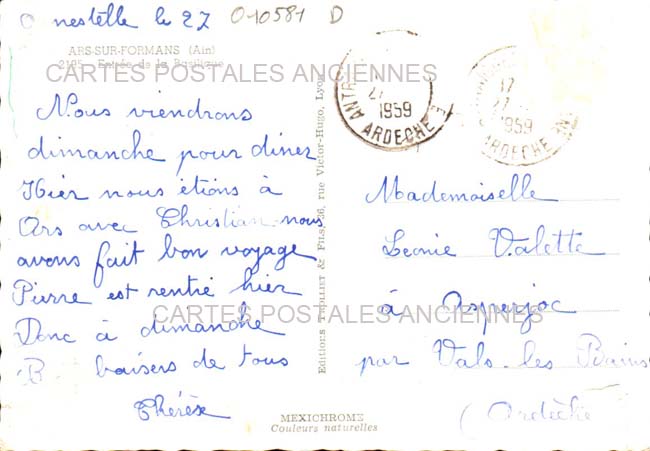 nestelle le 27
010581 D
ARS-SUR-FORMANS (Ain)
2195 - Entrée de la Basilique
CARTES POSTALES ANCIENNES
Nous viendrons
dimanche pour diner
Hier nous étions à
Ars avec Christian. nous
avons fait bon voyage
Pierre est rentré hier
Donc à dimanche
B baisers de tous
Thérèse
Editions & Fils, 36, rue Victor-Hugo, Lyon
ANTR
1959
ARDECHE
17
27
1959
ARDECHE
Mademoiselle
Leonie Valette
à Asperjoc
par Vals les Bains
(Ardèche
CARTES POSTALES ANCIENNES
MEXICHROME
Couleurs naturelles